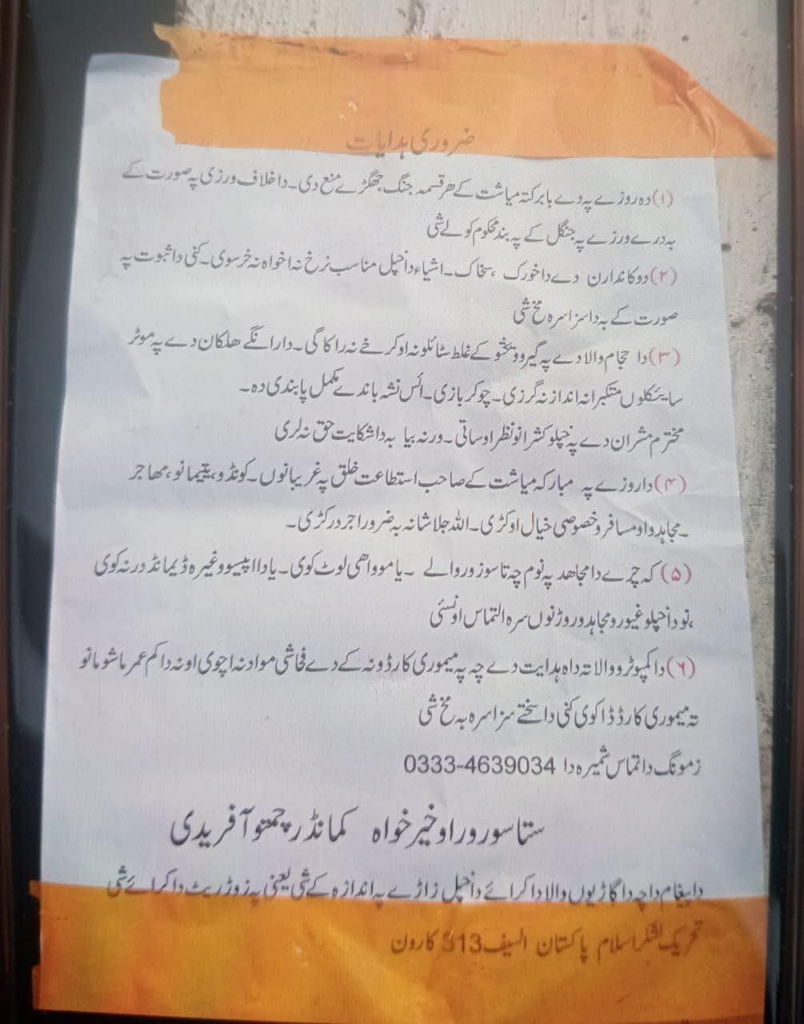 ضروری ہدایات
(۱) دہ روزے پہ دے بابرکتہ میاشت کے ھر قسمہ جنگ جھگڑے منع دی۔ دا خلاف ورزی پہ صورت کے
بہ درے ورزے پہ جنگل کے پہ بند محکوم کولے شی
(۲) دوکاندارن دے دا خورک ، سخاک۔ اشیاء داخپل مناسب نرخ نہ اخواہ نہ خرسوی۔ کنی دا ثبوت پہ
صورت کے بہ دا سزا سرہ مخ شی
(۳) دا حجام والا دے پہ گیرو ویختو کے غلط سٹائلونہ اوکرخے نہ راکاگی۔ دارانگے ھلکان دے پہ موٹر
سایئکلوں متکبرانہ انداز نہ گرزی۔ چوکر بازی۔ ائس نشہ باندے مکمل پابندی دہ۔
محترم مشران دے پہ خپلو کشرانو نظر اوساتی۔ ورنہ بیا بہ دا شکایت حق نہ لری
(۴) دا روزے پہ مبارکہ میاشت کے صاحب استطاعت خلق پہ غریبانوں۔ کونڈو، یتیمانو، مھاجر
۔مجاہدو او مسافرو خصوصی خیال اوکڑی۔ اللہ جلاشانہ بہ ضرور اجر درکڑی۔
(۵) کہ چرے دا مجاھد پہ نوم چہ تاسو زورولے ۔ یا مو واھی لوٹ کوی۔ یا دا اپیسو وغیرہ ڈیمانڈ درنہ کوی
،نو دا خپلو غیور و مجاہدو روڑنوں سرہ التماس اونسئی
(۶) دا کمپوٹرو والا تہ داہ ہدایت دے چہ پہ میموری کارڈونہ کے دے فحاشی مواد نہ اچوی او نہ دا کم عمر ماشومانو
تہ میموری کارڈ ڈاکوی کنی دا سختے سزا سرہ بہ مخ شی
زمونگ دا تماس شمیرہ دا 0333-4639034
ستاسو رور او خیر خواہ کمانڈر چمتو آفریدی
دا پیغام دا چہ دا گاڑیوں والا دا کرائے داخپل زاڑے پہ اندازہ کے شی یعنی پہ زوڑ ریٹ دا کرائے شی
تحریک لشکر اسلام پاکستان السیف 313 کارون